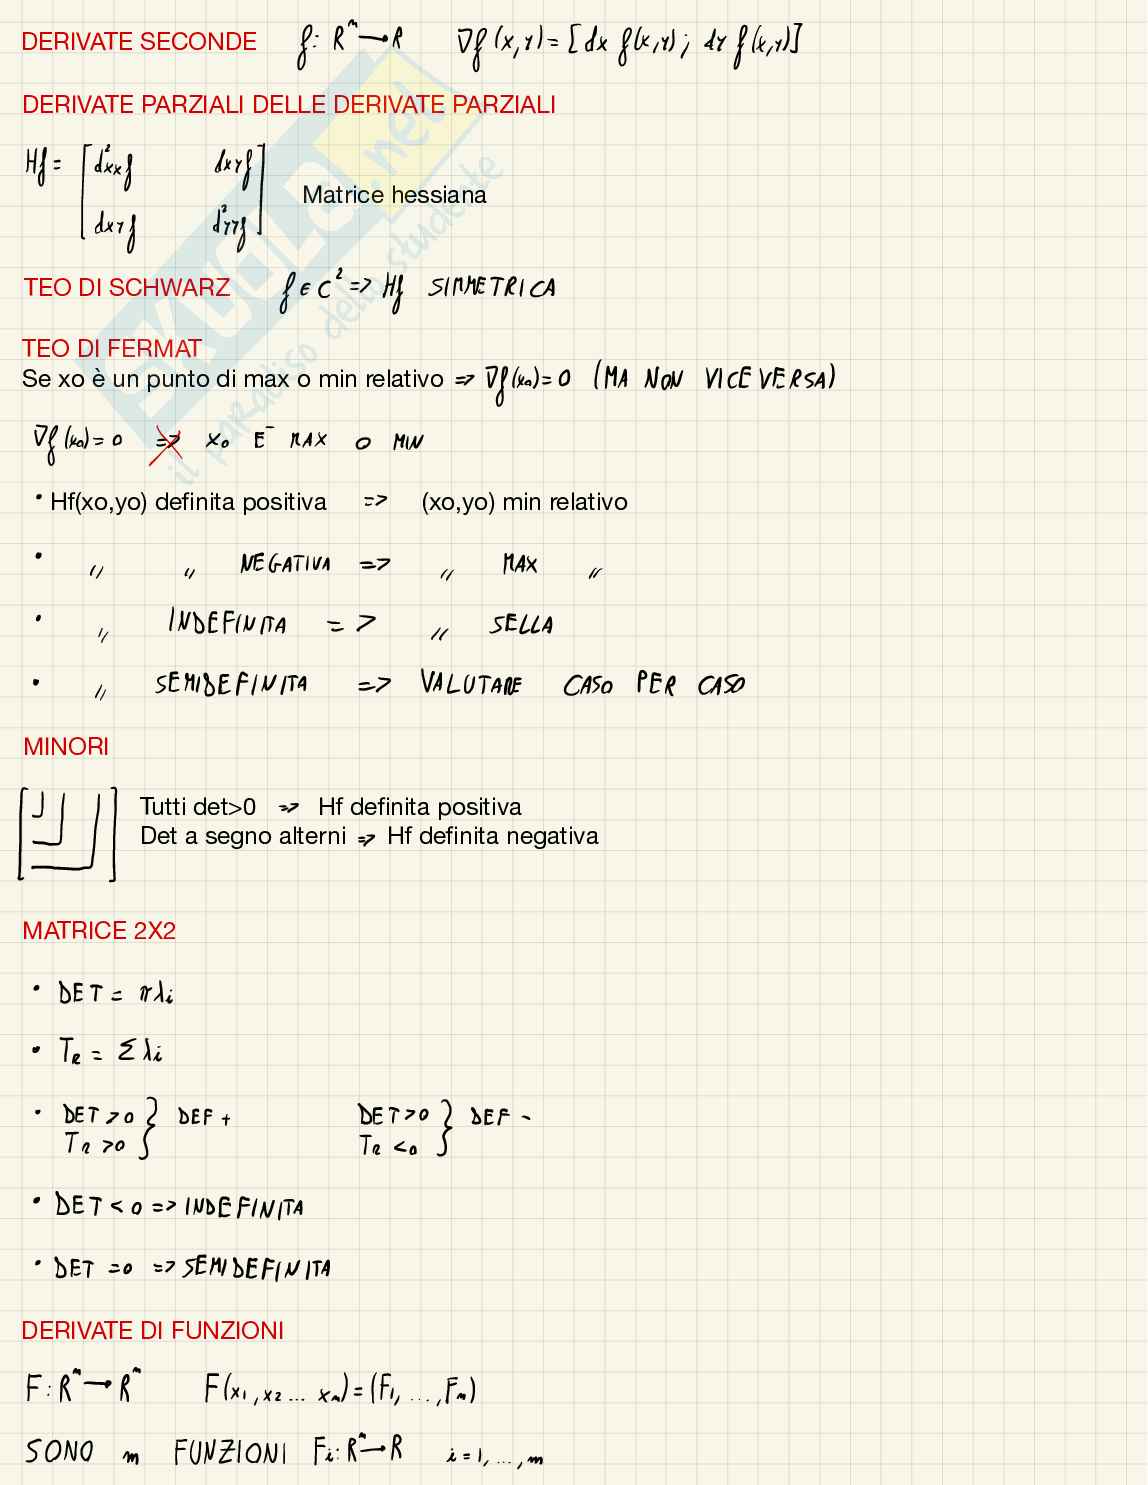 DERIVATE SECONDE f: Rⁿ → R ∇f(x,y) = [dx f(x,y); dy f(x,y)]
DERIVATE PARZIALI DELLE DERIVATE PARZIALI
Hf = [d²xxf dxyf
dxyf d²yyf] Matrice hessiana
TEO DI SCHWARZ f ∈ C² => Hf SIMMETRICA
TEO DI FERMAT
Se xo è un punto di max o min relativo => ∇f(xo) = 0 (MA NON VICEVERSA)
∇f(xo) = 0 => xo E- MAX O MIN
• Hf(xo,yo) definita positiva => (xo,yo) min relativo
• " " NEGATIVA => " MAX "
• " INDEFINITA => " SELLA
• " SEMIDEFINITA => VALUTARE CASO PER CASO
MINORI
Tutti det>0 => Hf definita positiva
Det a segno alterni => Hf definita negativa
MATRICE 2X2
• DET = πλi
• TR = Σλi
• DET > 0 } DEF + DET > 0 } DEF -
TR > 0 TR < 0
• DET < 0 => INDEFINITA
• DET = 0 => SEMIDEFINITA
DERIVATE DI FUNZIONI
F: Rⁿ → Rᵐ F(x1, x2 ... xn) = (F1, ..., Fm)
SONO m FUNZIONI Fi: Rⁿ → R i = 1, ..., m
SKUOLA.net
il paradiso dello studente